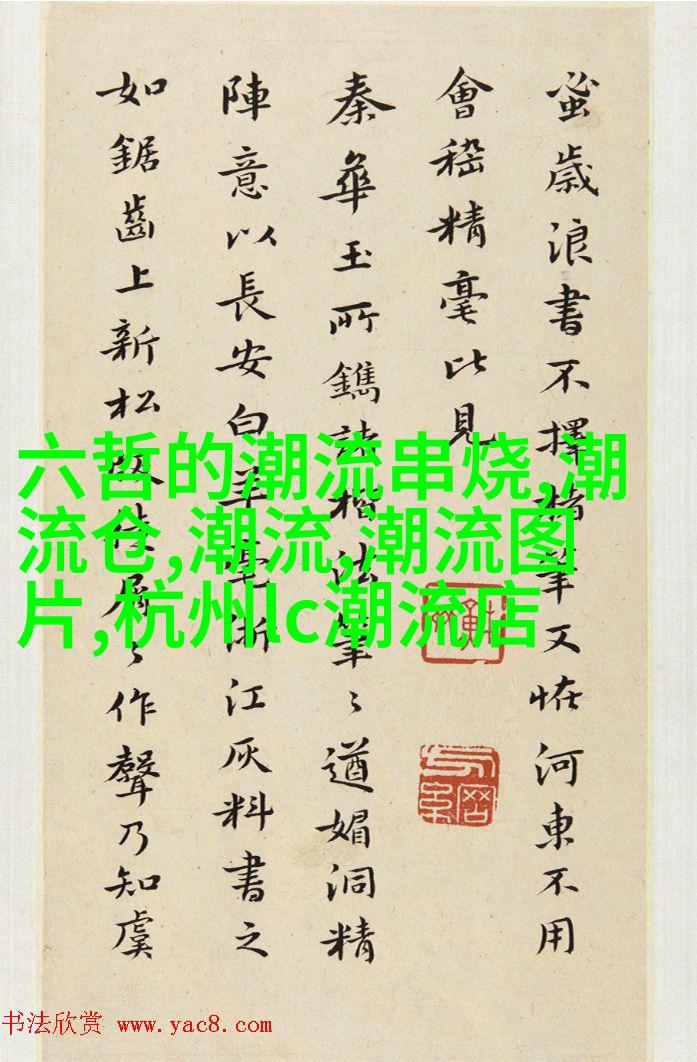 蚤歲浪書不擇楮筆又恠河東不用
會稽精毫此見
秦華玉所鐫諸楷法筆〻遒媚洞精
陣意以長安白羊毫浙江灰料書之
如鋸齒上新松屑〻作聲乃知虞
六哲的潮流串烧,潮
流仓,潮流,潮流图
片,杭州lc潮流店
书法欣赏 www.yac8.com